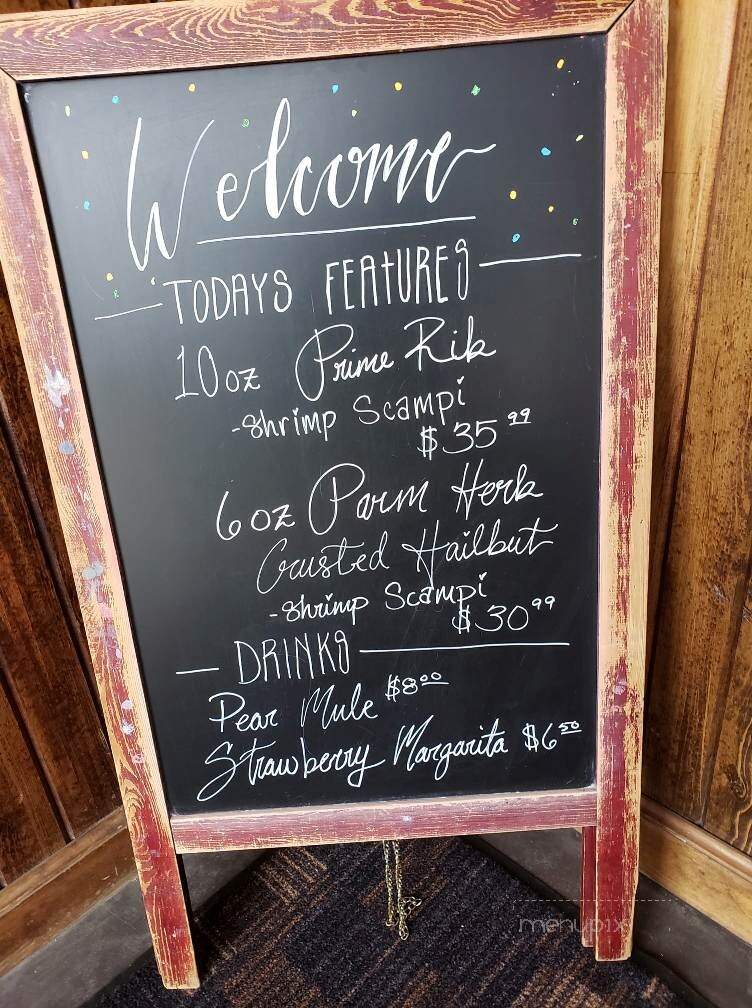 Welcome
TODAYS FEATURES
10oz Prime Rib
-Shrimp Scampi
$35 99
6oz Parm Herb
Crusted Hailbut
-Shrimp Scampi
$30 99
DRINKS
Pear Mule $8 00
Strawberry Margarita $6 50
menupix